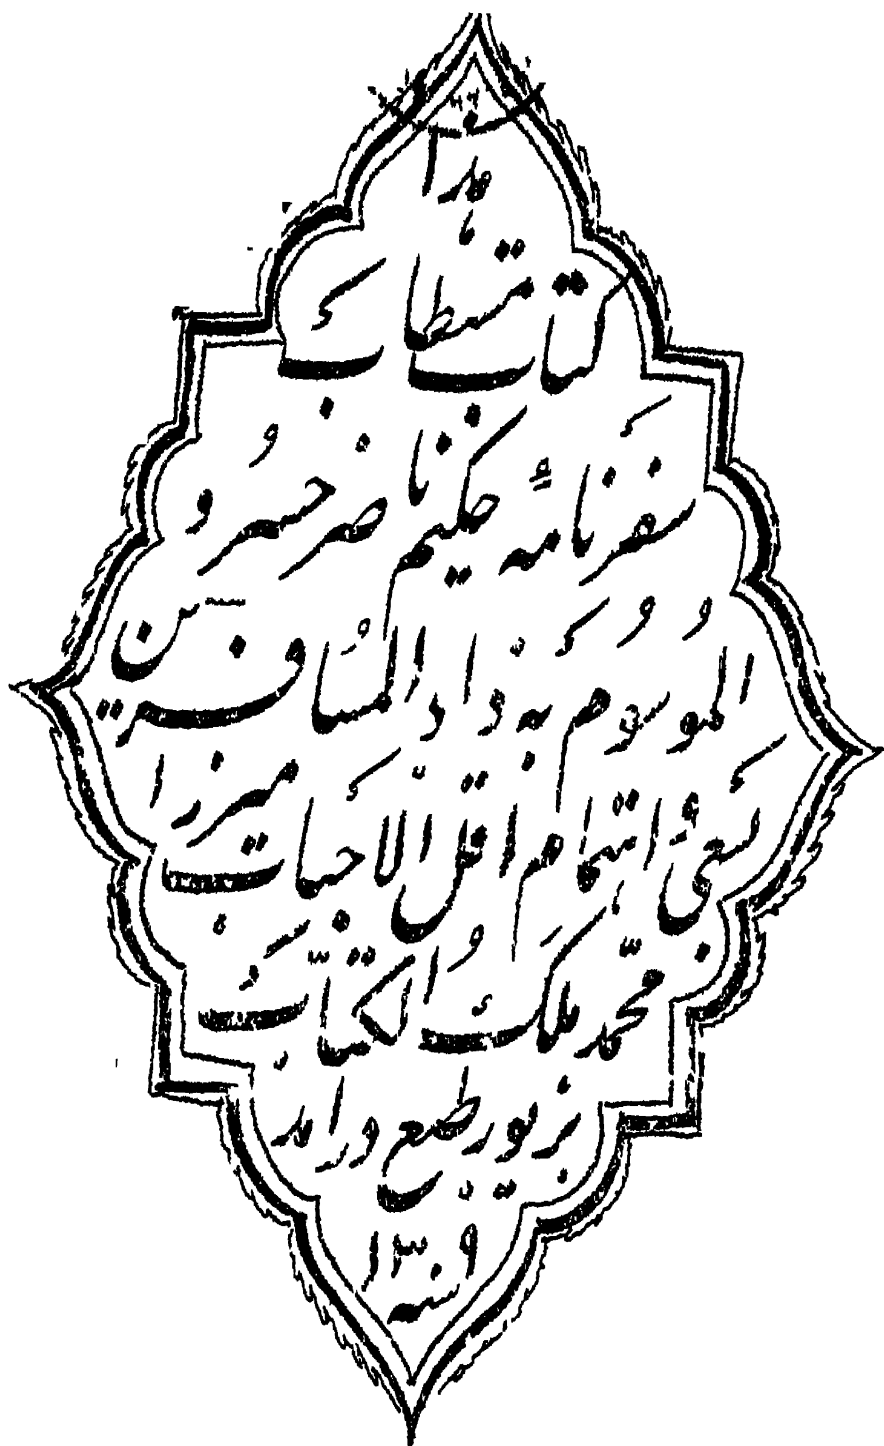 هذا
کتاب مستطاب
سفرنامهٔ حکیم ناصر خسرو
الموسوم به زاد المسافرین
بسعی اهتمام اقل الاحباب میرزا
محمد ملک الکتاب
بزیور طبع درآمد
سنه ۱۳۰۹